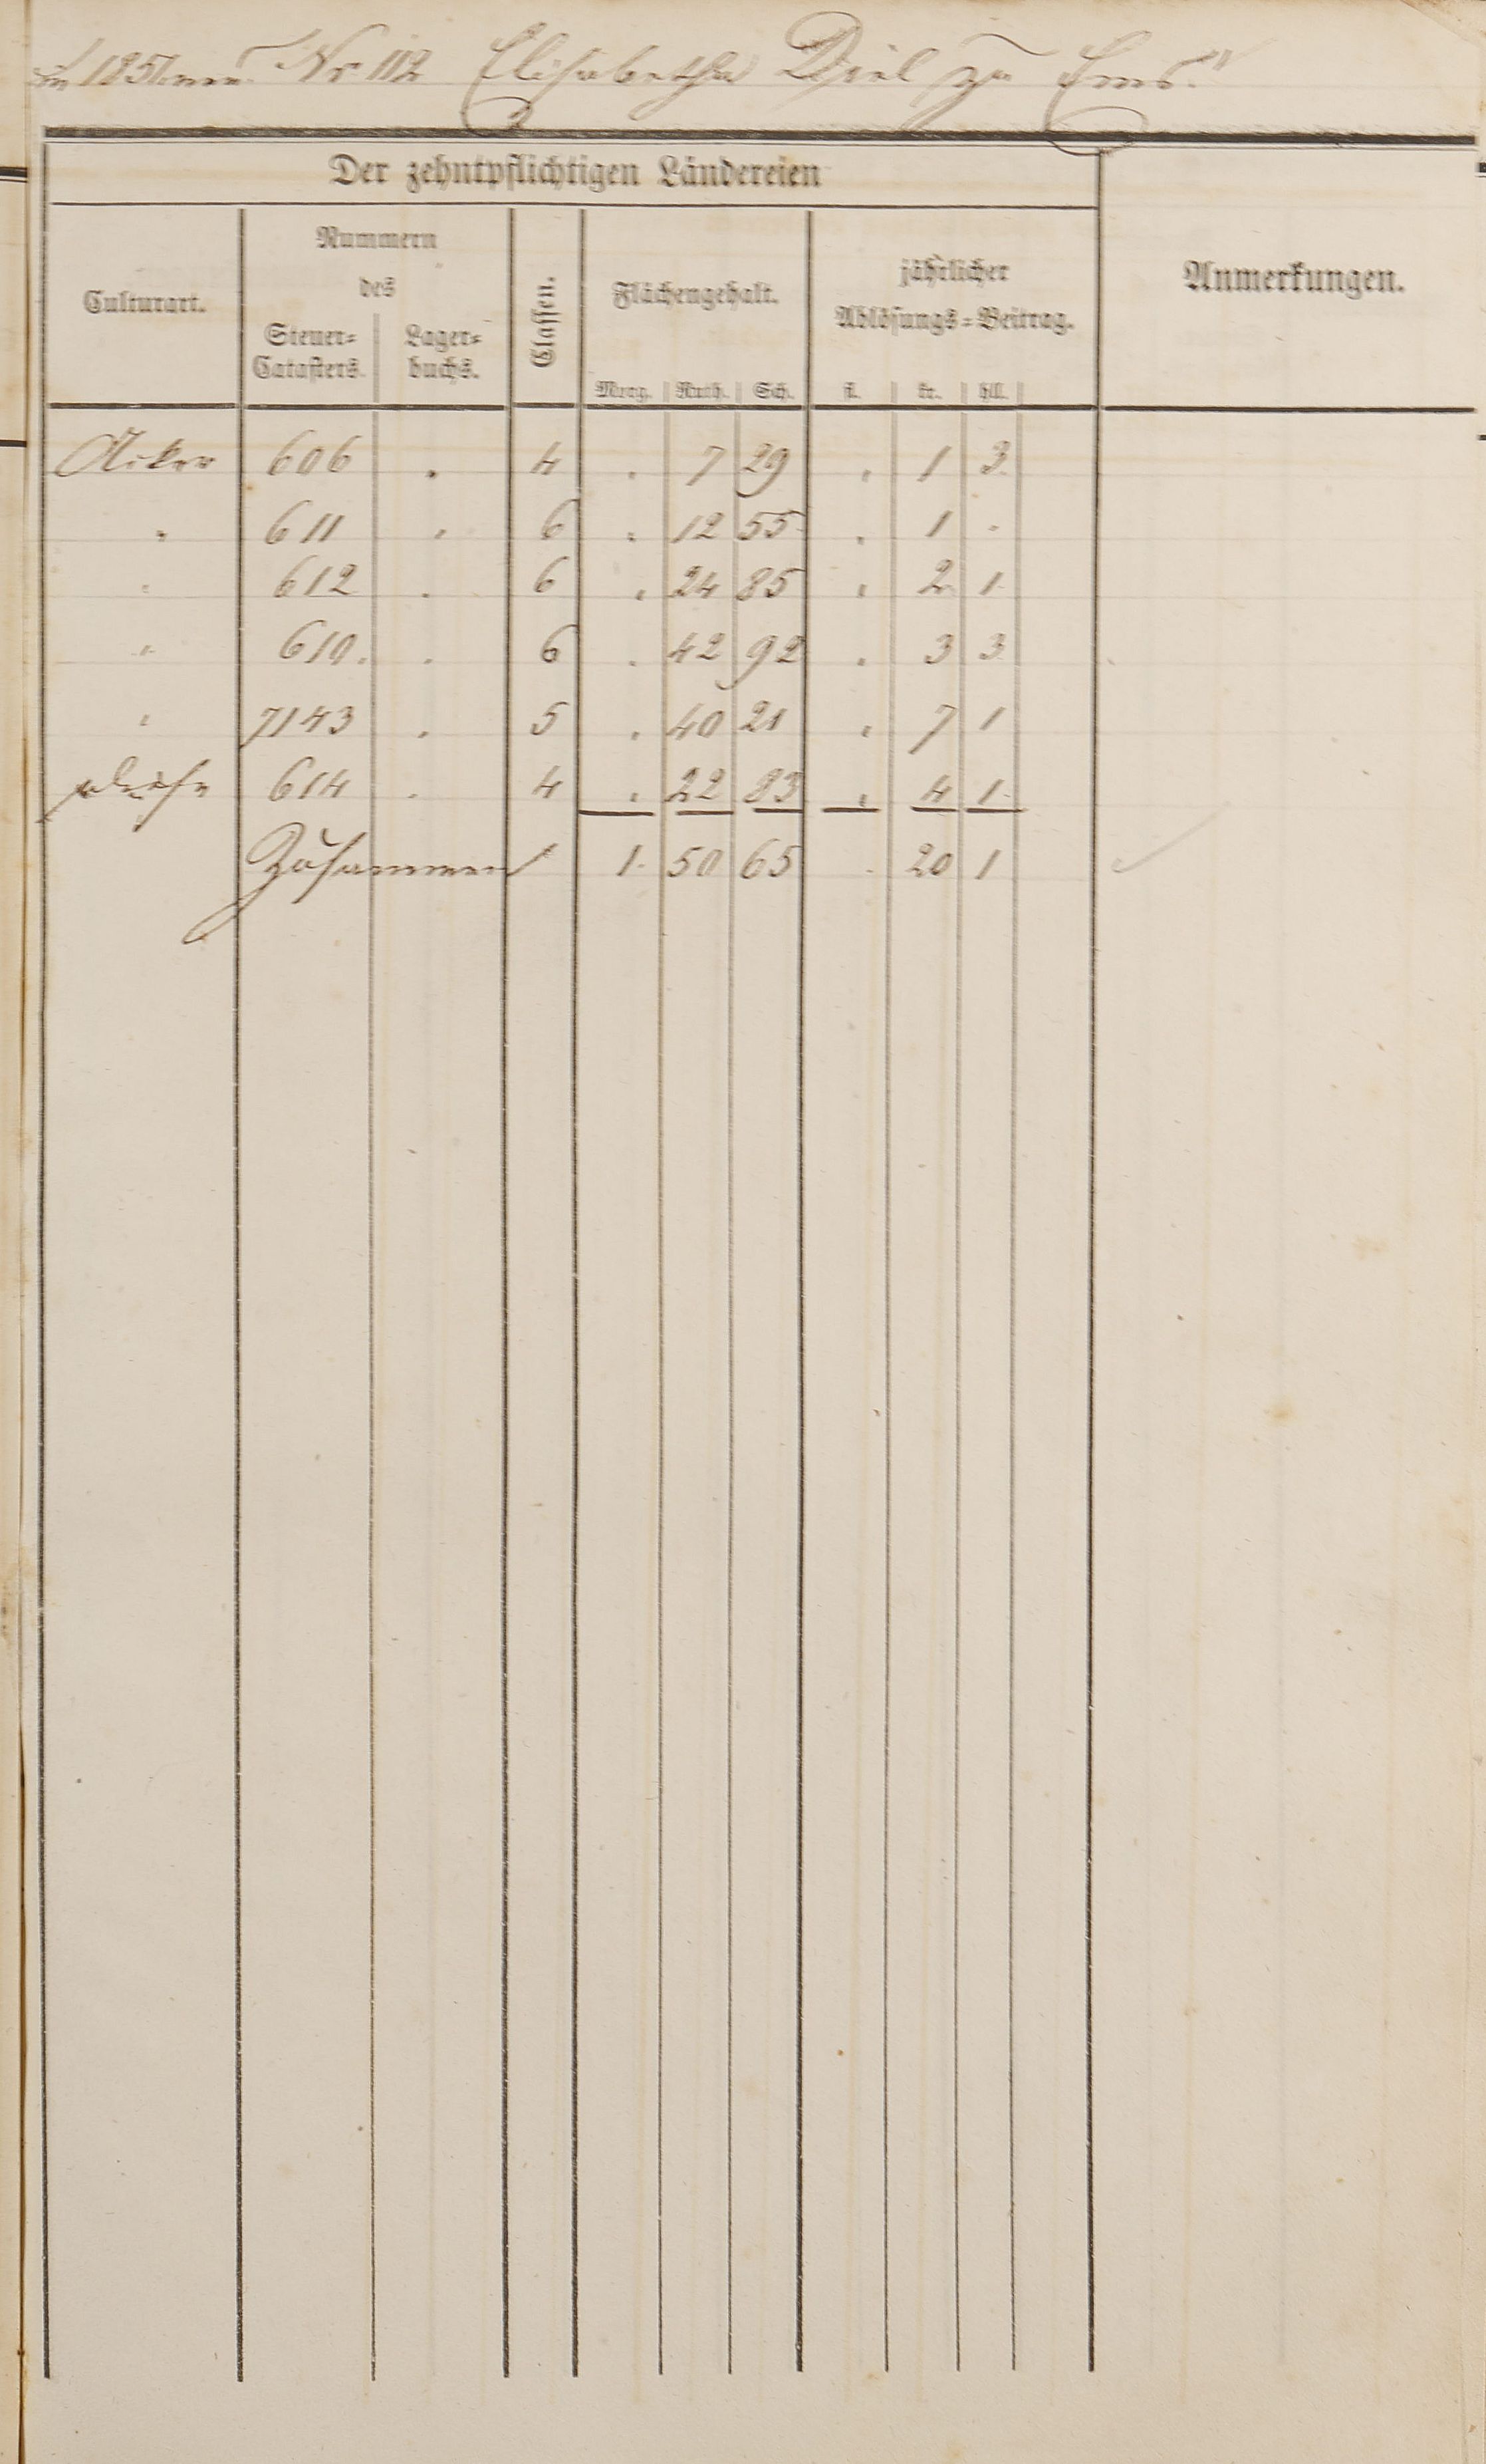 1851 Nr 112 Elisabetha Diel zu Ems."
Der zehntpflichtigen Ländereien
Culturart. Nummern des Steuer-Catasters. Lager-buchs. Classen. Flächengehalt. Morg. Ruth. Sch. jährlicher Ablösungs-Beitrag. fl. kr. hll. Anmerkungen.
Acker 606 " 4 " 7 29 " 1 3
" 611 " 6 " 12 55 " 1 "
" 612 " 6 " 24 85 " 2 1
" 610. " 6 " 42 92 " 3 3
" 7143 " 5 " 40 21 " 7 1
614 " 4 " 22 83 " 4 1
Zusammen 1. 50 65 " 20 1